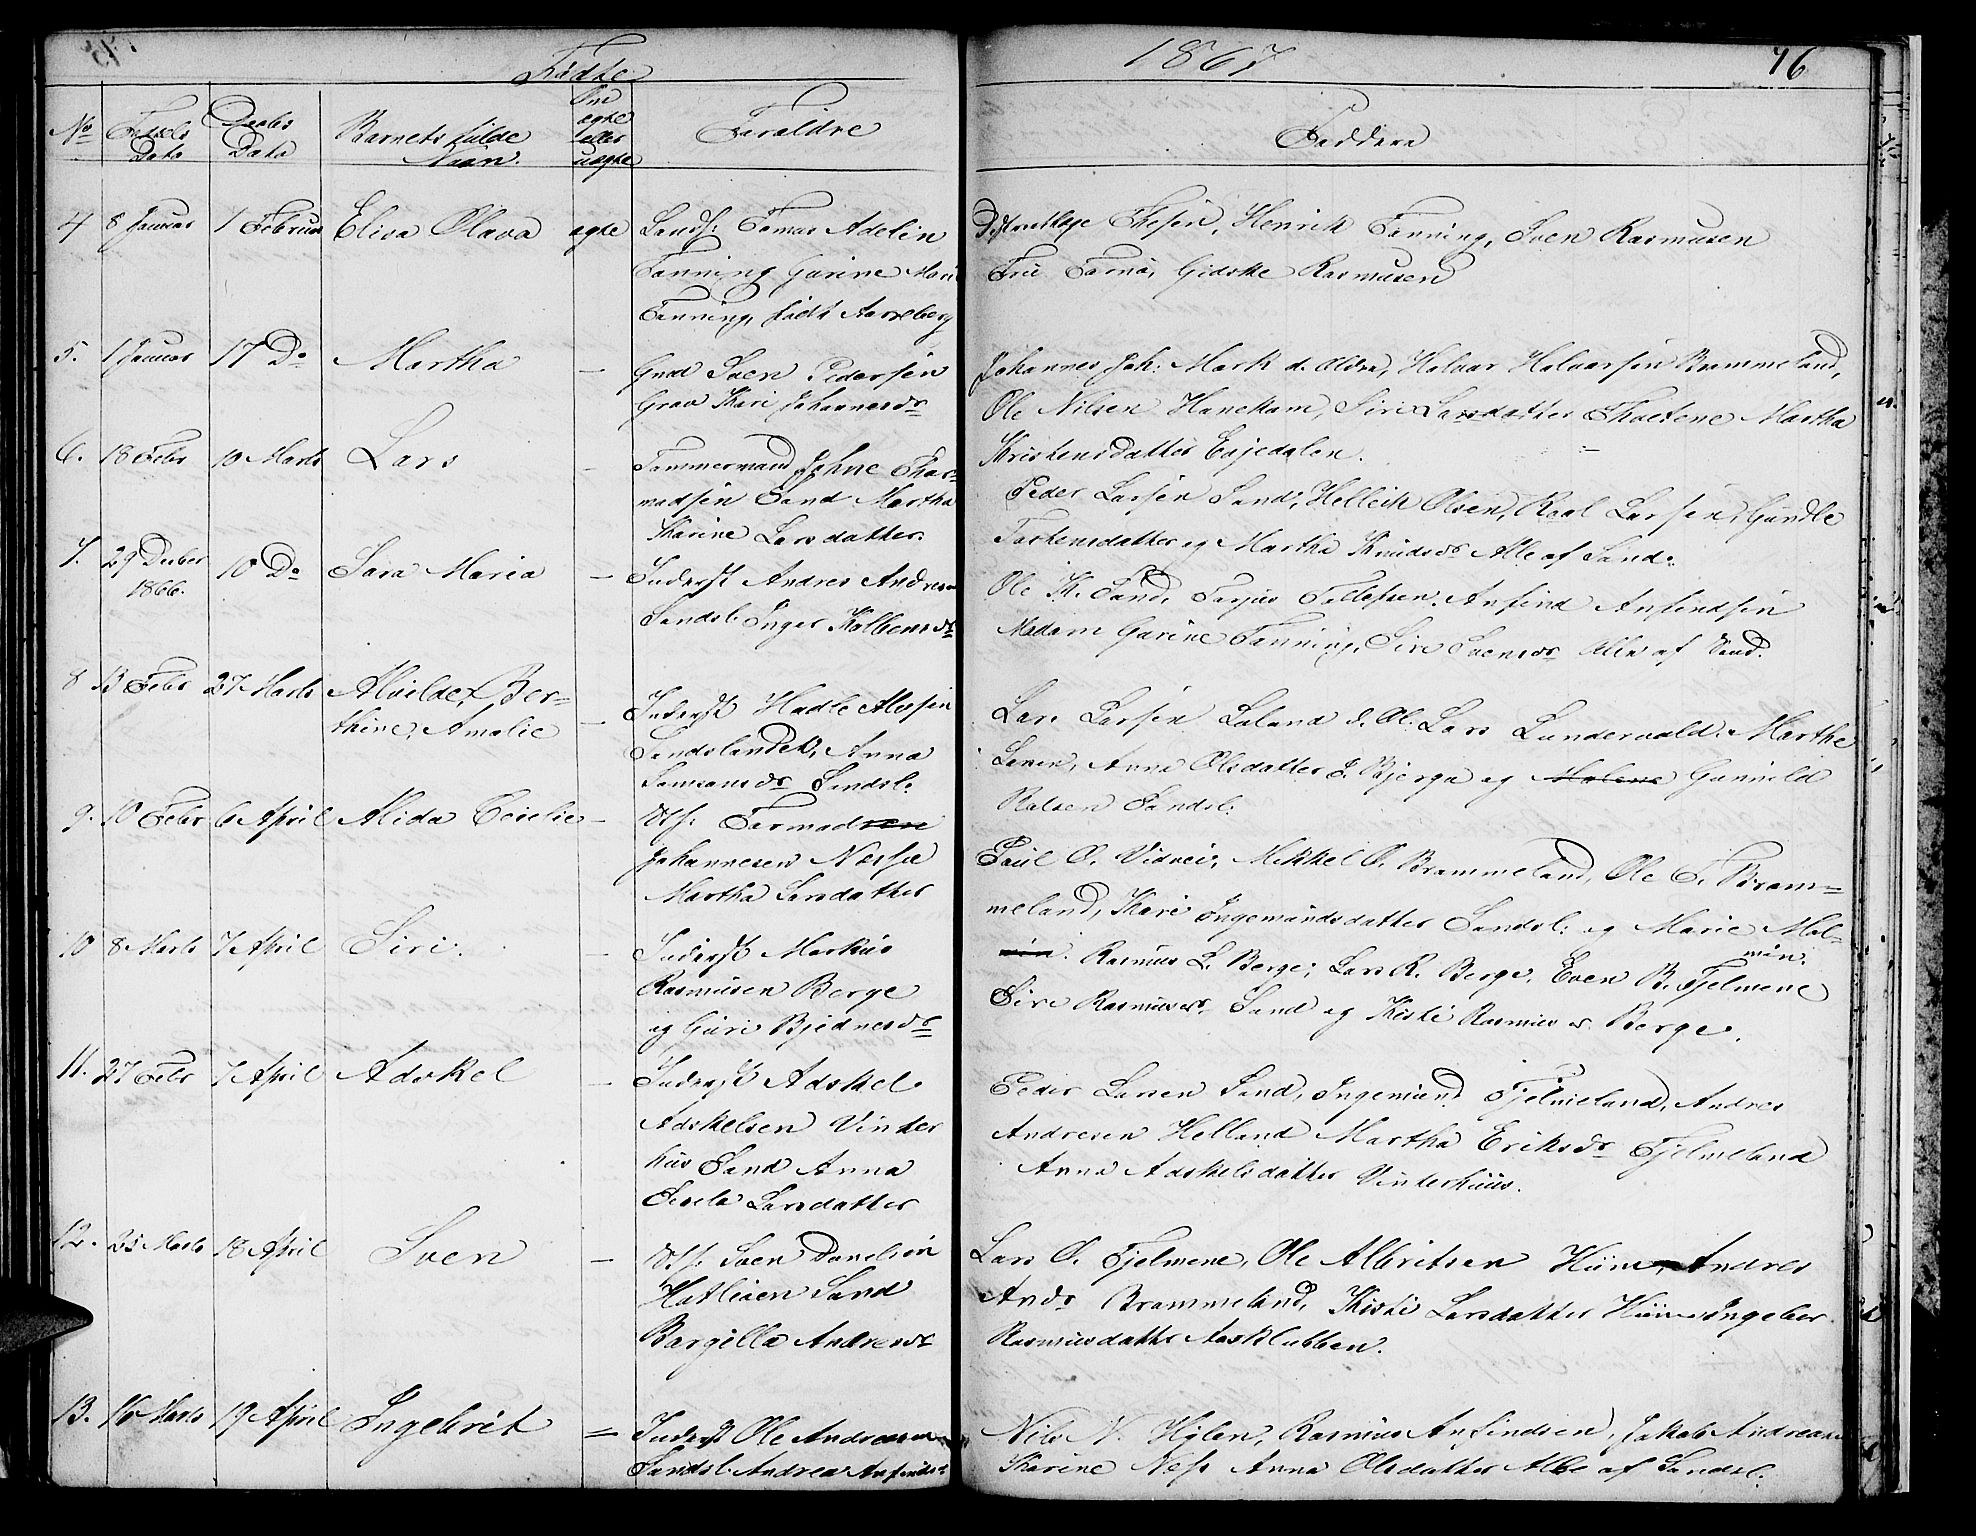 Fødte
1867
76
No
Fødsels
Dato
Daabs
Dato
Barnets fulde
Navn.
Om
egte
eller
uegte
Forældre
Faddere
4 8 Januar 1 Februar Elisa Olava egte
Landh: Tomas Adelin
Fanning Garine Marie
Fanning, født Aarseberg
Henrik Fanning, Sven Rasmusen
Gidske Rasmusen
5. 1 Januar 17 Do Martha –
Gmd Sven Pedersen
Grav Kari Johannesdr
Johannes Joh: Mark d. Oldre, Halvar Halvarsen Brommeland,
Ole Nilsen Hanekam, Siri Larsdatter Martha
Kristensdatter Eijedalen.
6. 18 Febr 10 Marts Lars –
Tømmermand Johne Thor-
madsen Sand Martha
Karine Larsdatter.
Peder Larsen Sand, Helleik Olsen, Roal Larsen, Gundle
Torkensdatter og Martha Knudsdr Alle af Sand.
7. 29 Decber
1866. 10 Do Sara Maria –
Inderst Andres Andresen
Sandsl. Inger Kolbensdr
Ole K. Sand, Tarjus Tellefsen, Anfind Anfindsen
Madam Garine Fanning, Siri Svensdr Alle af Sand.
8 13 Febr 27 Marts Alvilde, Ber-
thine, Amalie –
Inderst Hadle Alesen
Sandslandet, Anna
Samsonsdr Sandsl.
Lars Larsen Laland d. Æl. Lars Lundervald. Marthe
Larsen, Anna Olsdatter S. Bjerga og Malene Gunnild
Ralsen Sandsl.
9. 10 Febr 6 April Alida Cecelie –
Tarmod
Johannesen Næsse
Martha Larsdatter
Paul O. Vidvei, Mikkel O. Brommeland, Ole T. Bram-
meland, Kari Ingemundsdatter Sandsl. og Marie Mal-
min.
10 8 Marts 7 April Siri. –
Inderst Markus
Rasmusen Berge
og Guri Bjednesdr
Rasmus L. Berge, Lars R. Berge, Even B. Fjelmene
Siri Rasmusdr Sand og Kisti Rasmusdr Berge.
11. 27 Febr 7 April Adskel –
Inderst Adskel
Adskelsen Vinter
hus Sand Anna
Secela Larsdatter
Peder Larsen Sand, Ingemund Fjelmeland, Andres
Andresen Helland Martha Eriksdr Fjelmeland
Anna Adskelsdatter Vinterhuus.
12. 25 Marts 18 April Sven –
Sven Danelsen
Hatleøen Sand
Bargilla Andresdr
Lars O. Fjelmene, Ole Albretsen Hiim, Andres
Andr Brommeland, Kisti Larsdatter Hiim Ingeber
Rasmusdatter Aasklubben.
13. 16 Marts 19 April Ingebrit =
Inderst Ole Andreasen
Sandsl. Andrea Anfindsdr
Nils N. Hylen, Rasmus Anfindsen, Jakob Andreasen
Karine Nese Anna Olsdatter Alle af Sandsl.